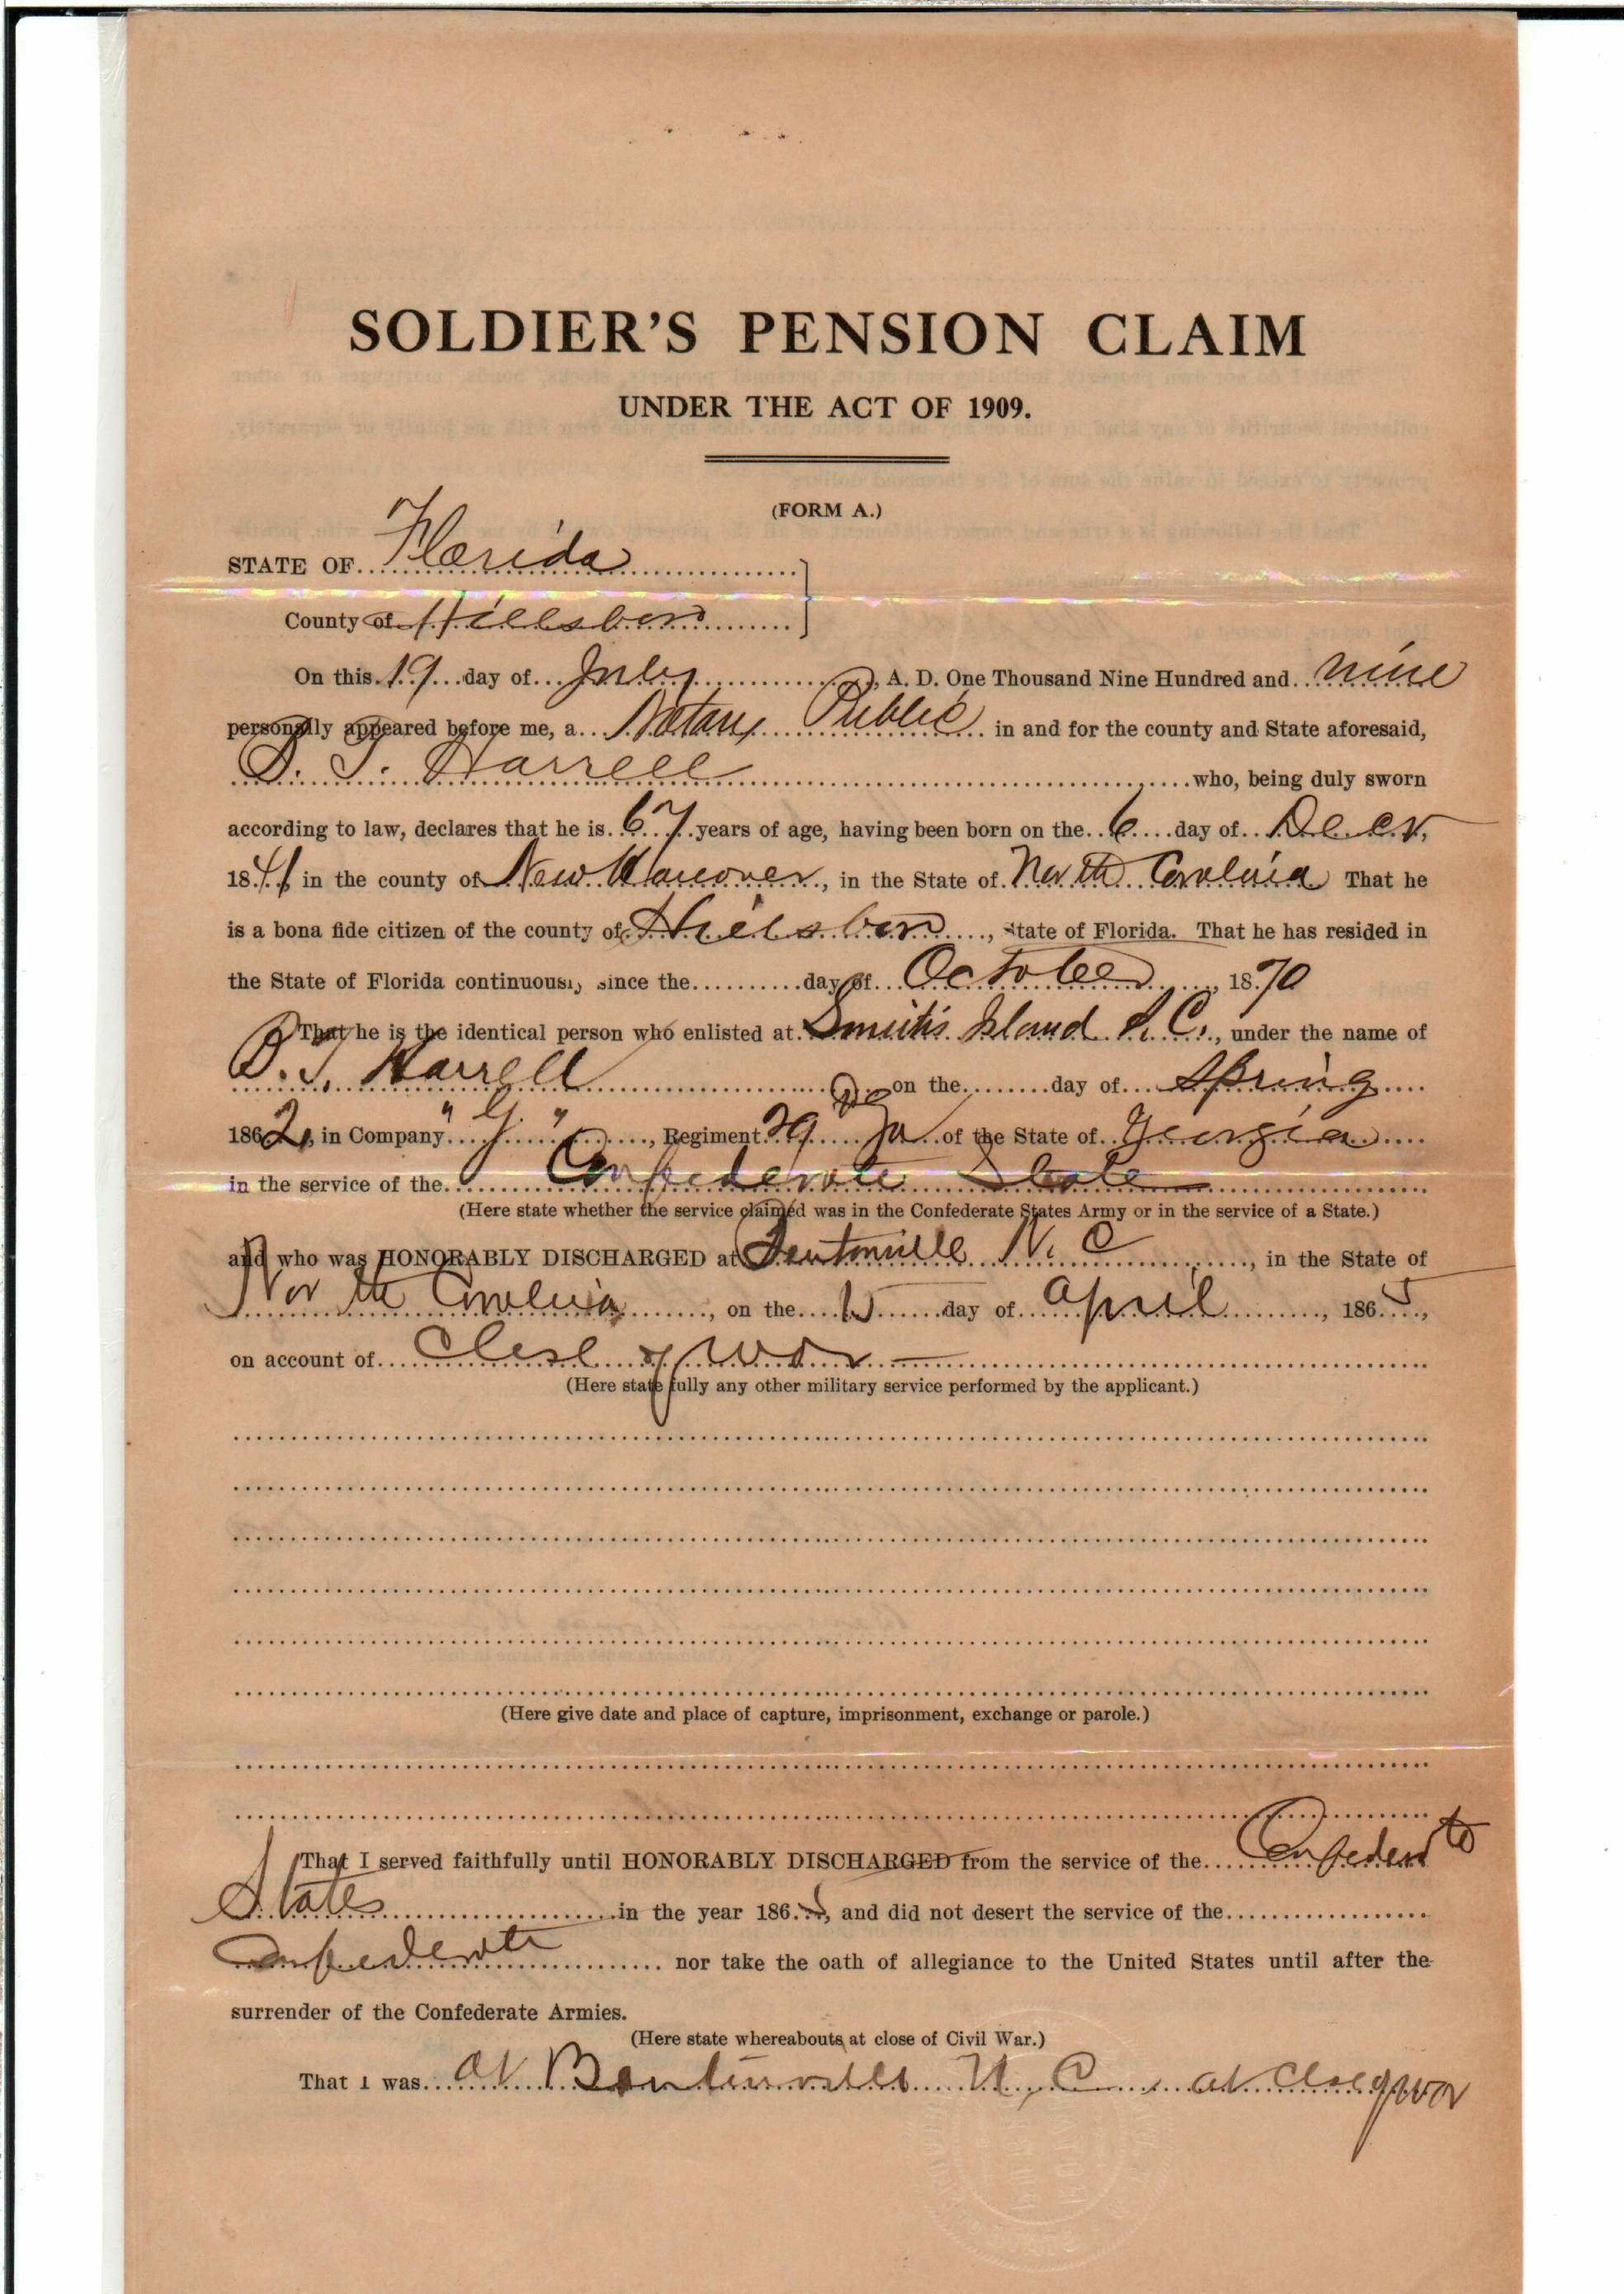 SOLDIER'S PENSION CLAIM
UNDER THE ACT OF 1909.
(FORM A.)
STATE OF Florida
County of Hillsboro
On this 19 day of July, A. D. One Thousand Nine Hundred and nine
personally appeared before me, a Notary Public in and for the county and State aforesaid,
B. T. Harrell who, being duly sworn
according to law, declares that he is 67 years of age, having been born on the 6 day of Decr,
1841 in the county of New Hanover, in the State of North Carolina That he
is a bona fide citizen of the county of Hillsboro, State of Florida. That he has resided in
the State of Florida continuously since the day of October, 1870
That he is the identical person who enlisted at Smiths Island S. C., under the name of
B. T. Harrell on the day of Spring
1862, in Company "G", Regiment 29 Ga of the State of Georgia
in the service of the Confederate State
(Here state whether the service claimed was in the Confederate States Army or in the service of a State.)
and who was HONORABLY DISCHARGED at Bentonville N. C, in the State of
North Carolina, on the 15 day of April, 1865,
on account of Close of War
(Here state fully any other military service performed by the applicant.)
(Here give date and place of capture, imprisonment, exchange or parole.)
That I served faithfully until HONORABLY DISCHARGED from the service of the Confederate
States in the year 1865, and did not desert the service of the
Confederate nor take the oath of allegiance to the United States until after the
surrender of the Confederate Armies.
(Here state whereabouts at close of Civil War.)
That I was at Bentonville N. C. at close of war